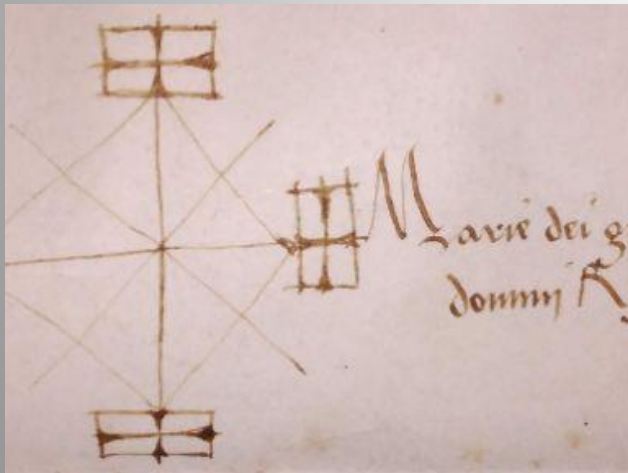 Marie dei
domini